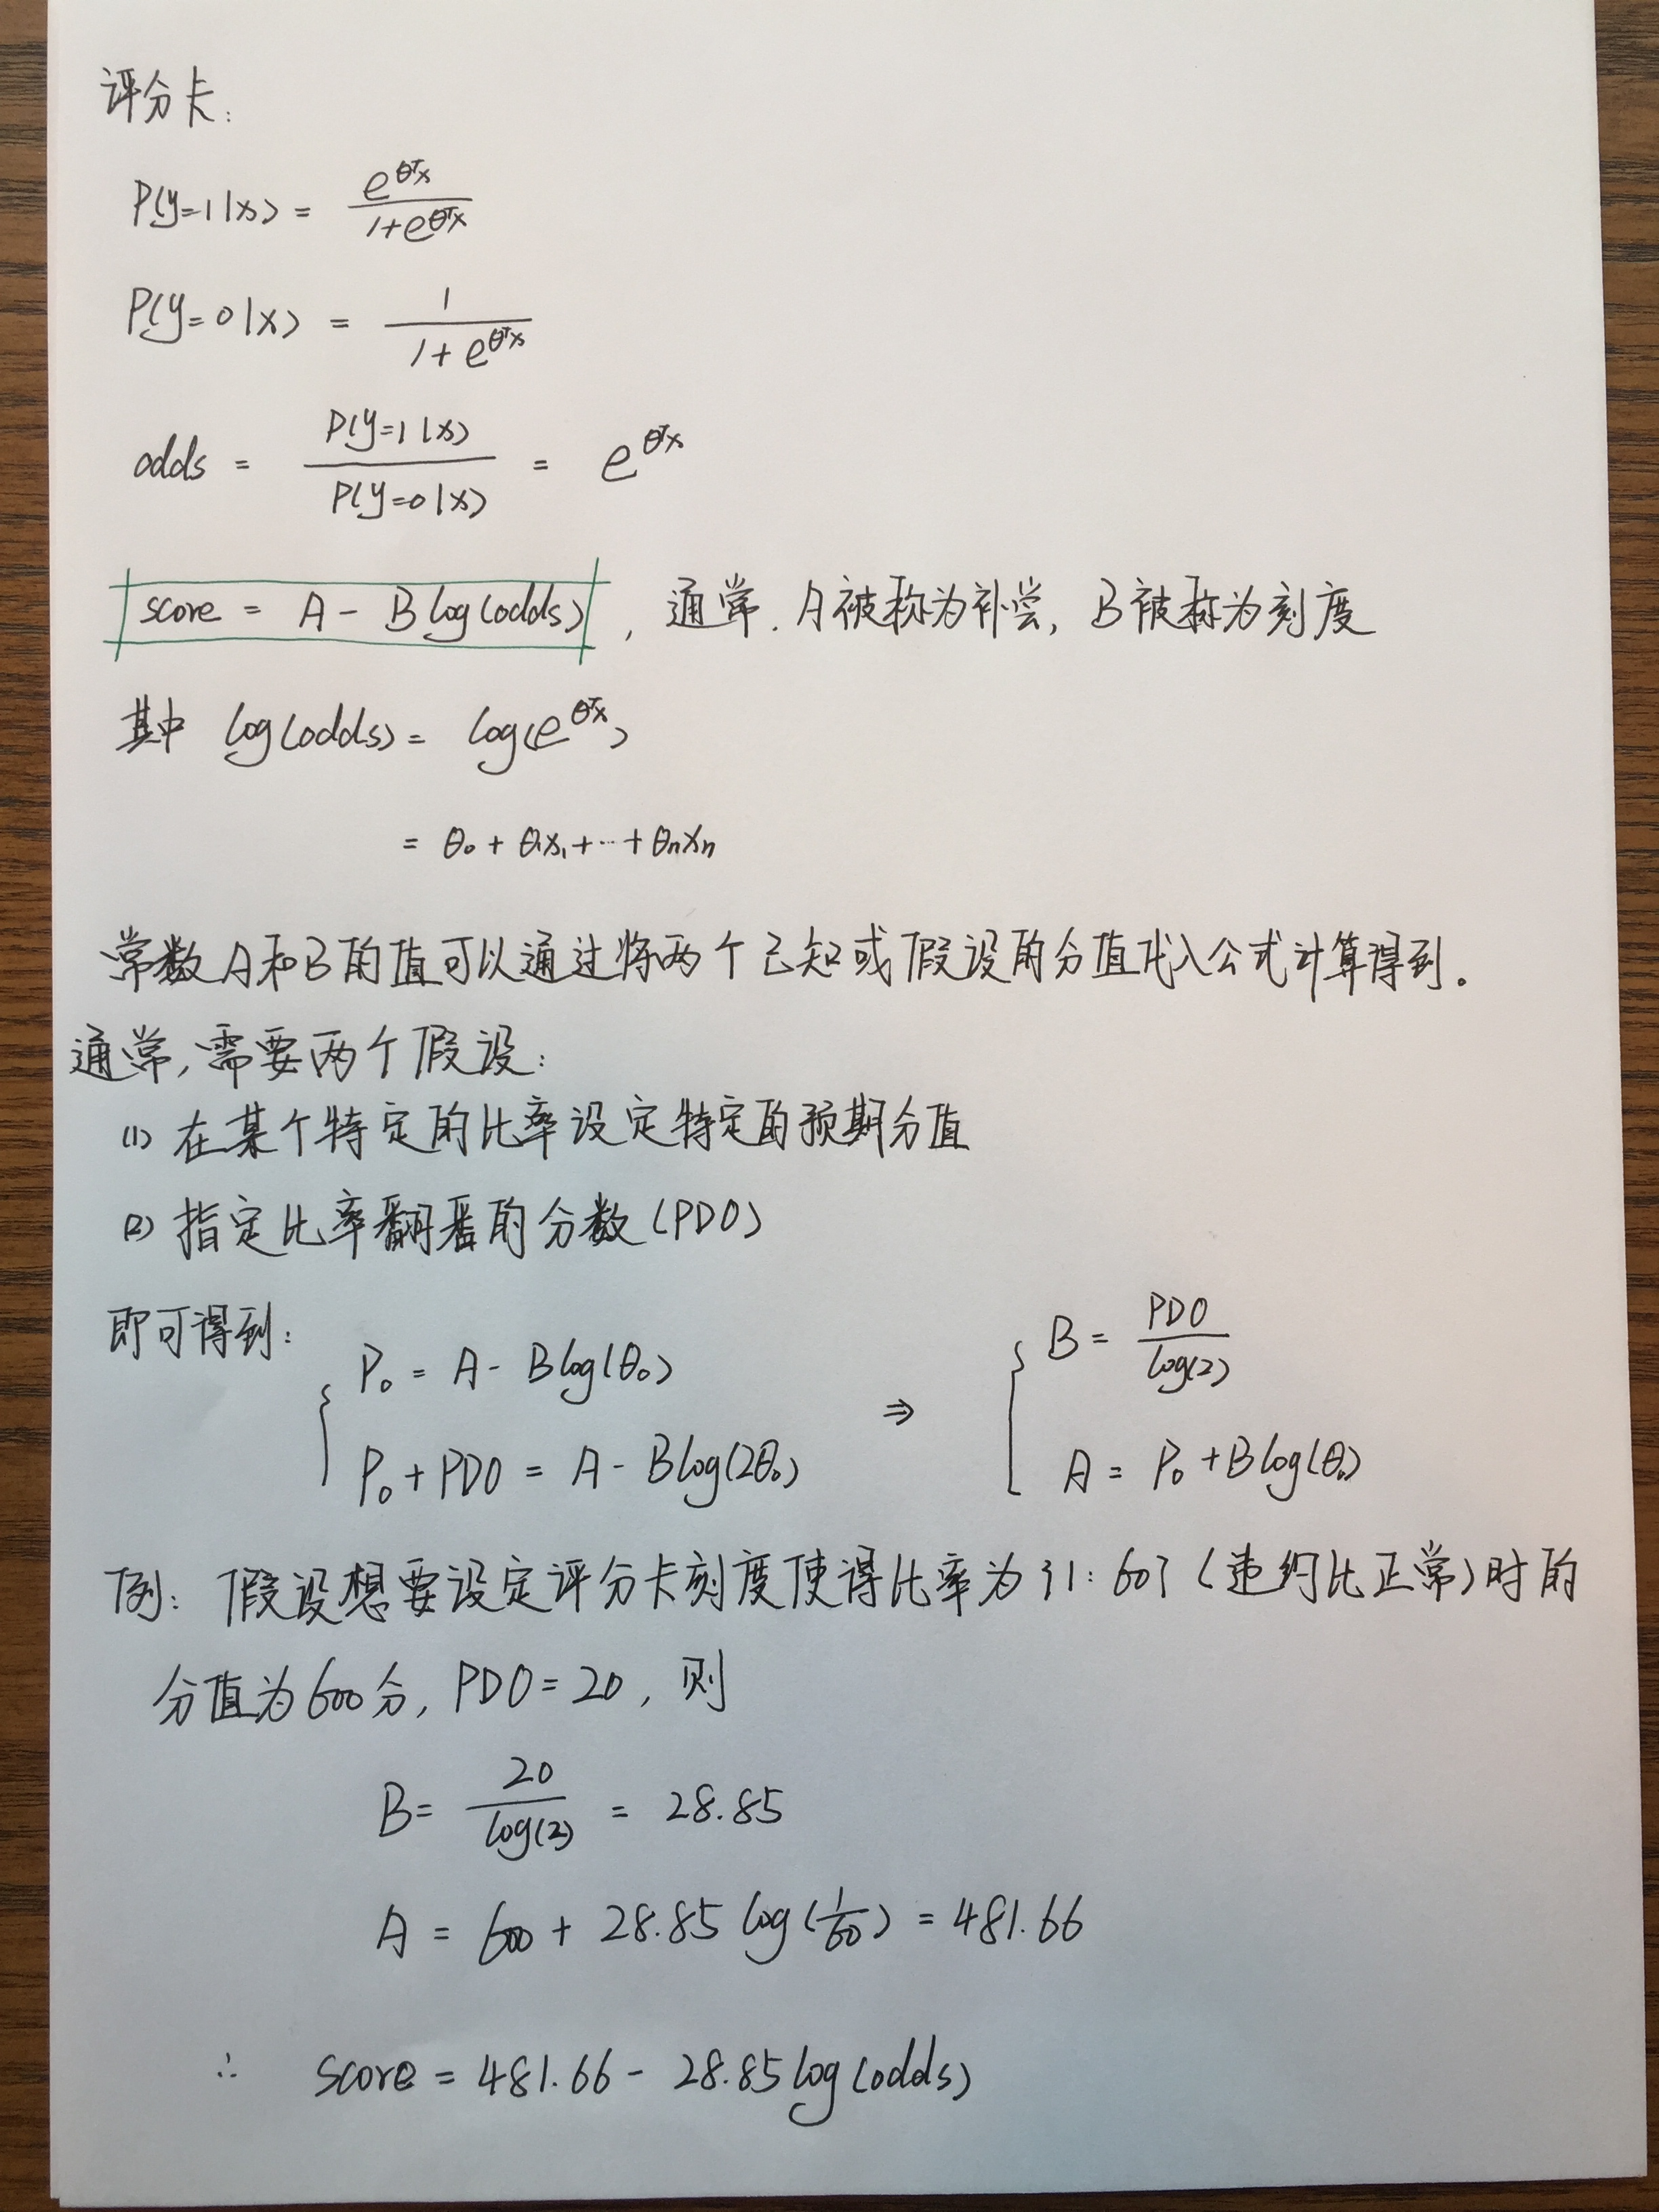 评分卡:
P(y=1|x) = e^{θᵀx} / (1+e^{θᵀx})
P(y=0|x) = 1 / (1+e^{θᵀx})
odds = P(y=1|x) / P(y=0|x) = e^{θᵀx}
score = A - B log(odds) , 通常, A被称为补尝, B被称为刻度
其中 log(odds) = log(e^{θᵀx})
= θ₀ + θ₁x₁ + … + θₙxₙ
常数A和B的值可以通过将两个已知或假设的分值代入公式计算得到。
通常,需要两个假设:
(1) 在某个特定的比率设定特定的预期分值
(2) 指定比率翻番的分数(PDO)
即可得到:
{ P₀ = A - B log(θ₀)
P₀ + PDO = A - B log(2θ₀)
⇒ { B = PDO / log(2)
A = P₀ + B log(θ₀)
例: 假设想要设定评分卡刻度使得比率为{1:60}(违约比正常)时的
分值为600分, PDO=20, 则
B = 20 / log(2) = 28.85
A = 600 + 28.85 log(1/60) = 481.66
∴ score = 481.66 - 28.85 log(odds)